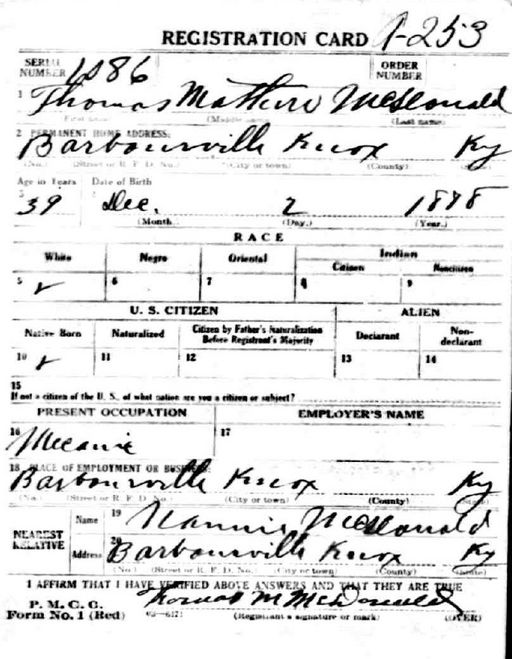 REGISTRATION CARD A-253
SERIAL NUMBER 1086 ORDER NUMBER
1 Thomas Mathew McDonald
(First name) (Middle name) (Last name)
2 PERMANENT HOME ADDRESS:
Barbourville Knox Ky
(No.) (Street or R. F. D. No.) (City or town) (County) (State)
Age in Years Date of Birth
3 39 Dec. 2 1878
(Month) (Day.) (Year.)
RACE
White Negro Oriental Indian
Citizen Noncitizen
5 ✓ 6 7 8 9
U. S. CITIZEN ALIEN
Native Born Naturalized Citizen by Father's Naturalization Before Registrant's Majority Declarant Non-declarant
10 ✓ 11 12 13 14
15
If not a citizen of the U. S., of what nation are you a citizen or subject?
PRESENT OCCUPATION EMPLOYER'S NAME
16 Mecanic 17
18 PLACE OF EMPLOYMENT OR BUSINESS:
Barbourville Knox Ky
(No.) (Street or R. F. D. No.) (City or town) (County) (State)
NEAREST RELATIVE Name 19 Nannie McDonald
Address 20 Barbourville Knox Ky
(No.) (Street or R. F. D. No.) (City or town) (County) (State)
I AFFIRM THAT I HAVE VERIFIED ABOVE ANSWERS AND THAT THEY ARE TRUE
P. M. G. O. Thomas M McDonald
Form No. 1 (Red) (Registrant's signature or mark) (OVER)